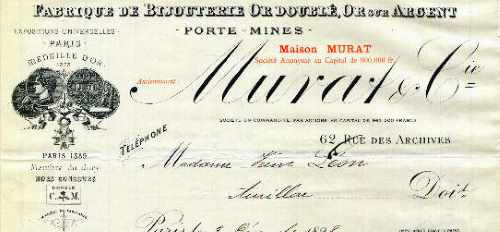 FABRIQUE DE BIJOUTERIE OR DOUBLÉ, OR SUR ARGENT
PORTE-MINES
EXPOSITIONS UNIVERSELLES
PARIS
MÉDAILLE D'OR
1878
Maison MURAT
Société Anonyme au Capital de 800,000 fr.
Anciennement
Murat & Cie
SOCIÉTÉ EN COMMANDITE PAR ACTIONS AU CAPITAL DE
FRANCS
62 RUE DES ARCHIVES
TÉLÉPHONE
PARIS 1889
Membre du Jury
HORS CONCOURS
C M
Madame Veuve Léon
Aurillac
Doit
Paris le